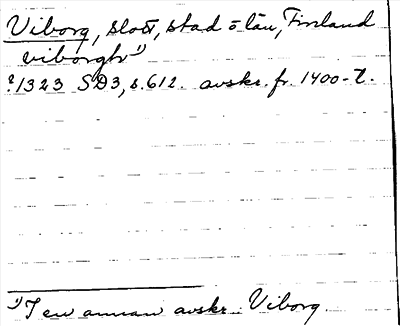 Viborg, slott, stad o län, Finland
viborgh 1)
?1323 SD3, s. 612. avskr. fr. 1400-t.
1) I en annan avskr. Viborg